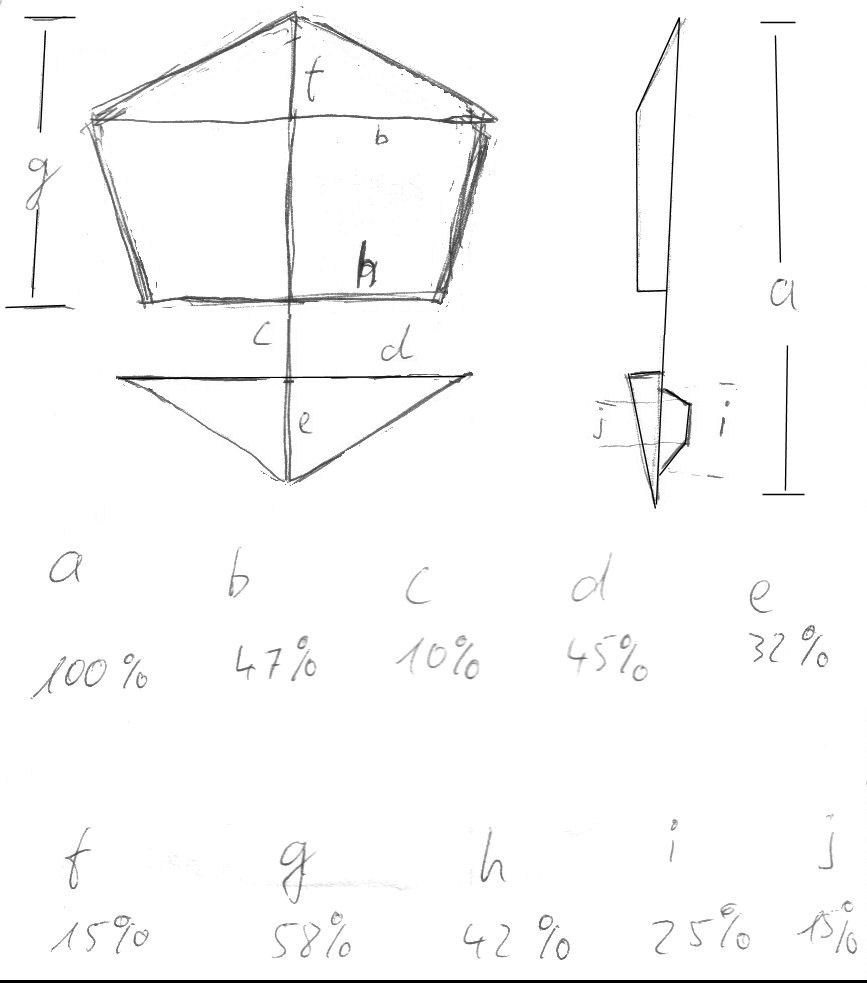 f
b
g
h
a
c
d
e
j
i
a b c d e
100% 47% 10% 45% 32%
f g h i j
15% 58% 42% 25% 15%